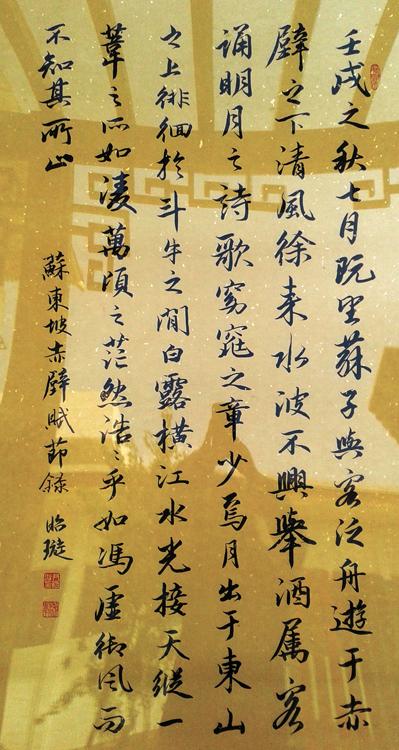 壬戌之秋七月既望蘇子與客泛舟遊于赤
壁之下清風徐来水波不興舉酒属客
誦明月之詩歌窈窕之章少焉月出于東山
之上徘徊於斗牛之間白露橫江水光接天縱一
葦之所如淩萬頃之茫然浩〻乎如馮虛御風而
不知其所止
蘇東坡赤壁賦節錄 昭璇